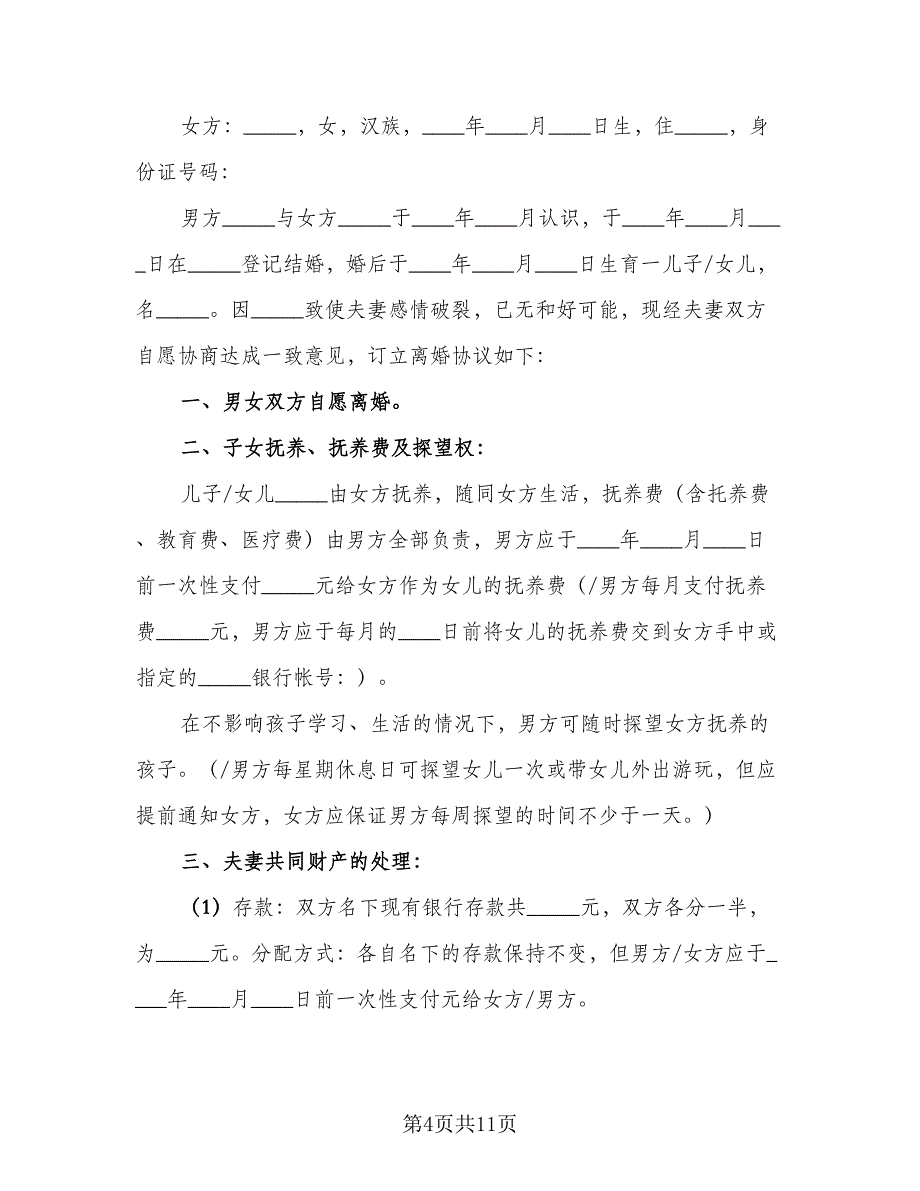 女方：_____，女，汉族，____年____月____日生，住_____，身
份证号码：
男方_____与女方_____于____年____月认识，于____年____月___
_日在_____登记结婚，婚后于____年____月____日生育一儿子/女儿，
名_____。因_____致使夫妻感情破裂，已无和好可能，现经夫妻双方
自愿协商达成一致意见，订立离婚协议如下：
一、男女双方自愿离婚。
二、子女抚养、抚养费及探望权：
儿子/女儿_____由女方抚养，随同女方生活，抚养费（含托养费
、教育费、医疗费）由男方全部负责，男方应于____年____月____日
前一次性支付_____元给女方作为女儿的抚养费（/男方每月支付抚养
费_____元，男方应于每月的____日前将女儿的抚养费交到女方手中或
指定的_____银行帐号：）。
在不影响孩子学习、生活的情况下，男方可随时探望女方抚养的
孩子。（/男方每星期休息日可探望女儿一次或带女儿外出游玩，但应
提前通知女方，女方应保证男方每周探望的时间不少于一天。）
三、夫妻共同财产的处理：
（1）存款：双方名下现有银行存款共_____元，双方各分一半，
为_____元。分配方式：各自名下的存款保持不变，但男方/女方应于_
___年____月____日前一次性支付元给女方/男方。
第4页共11页